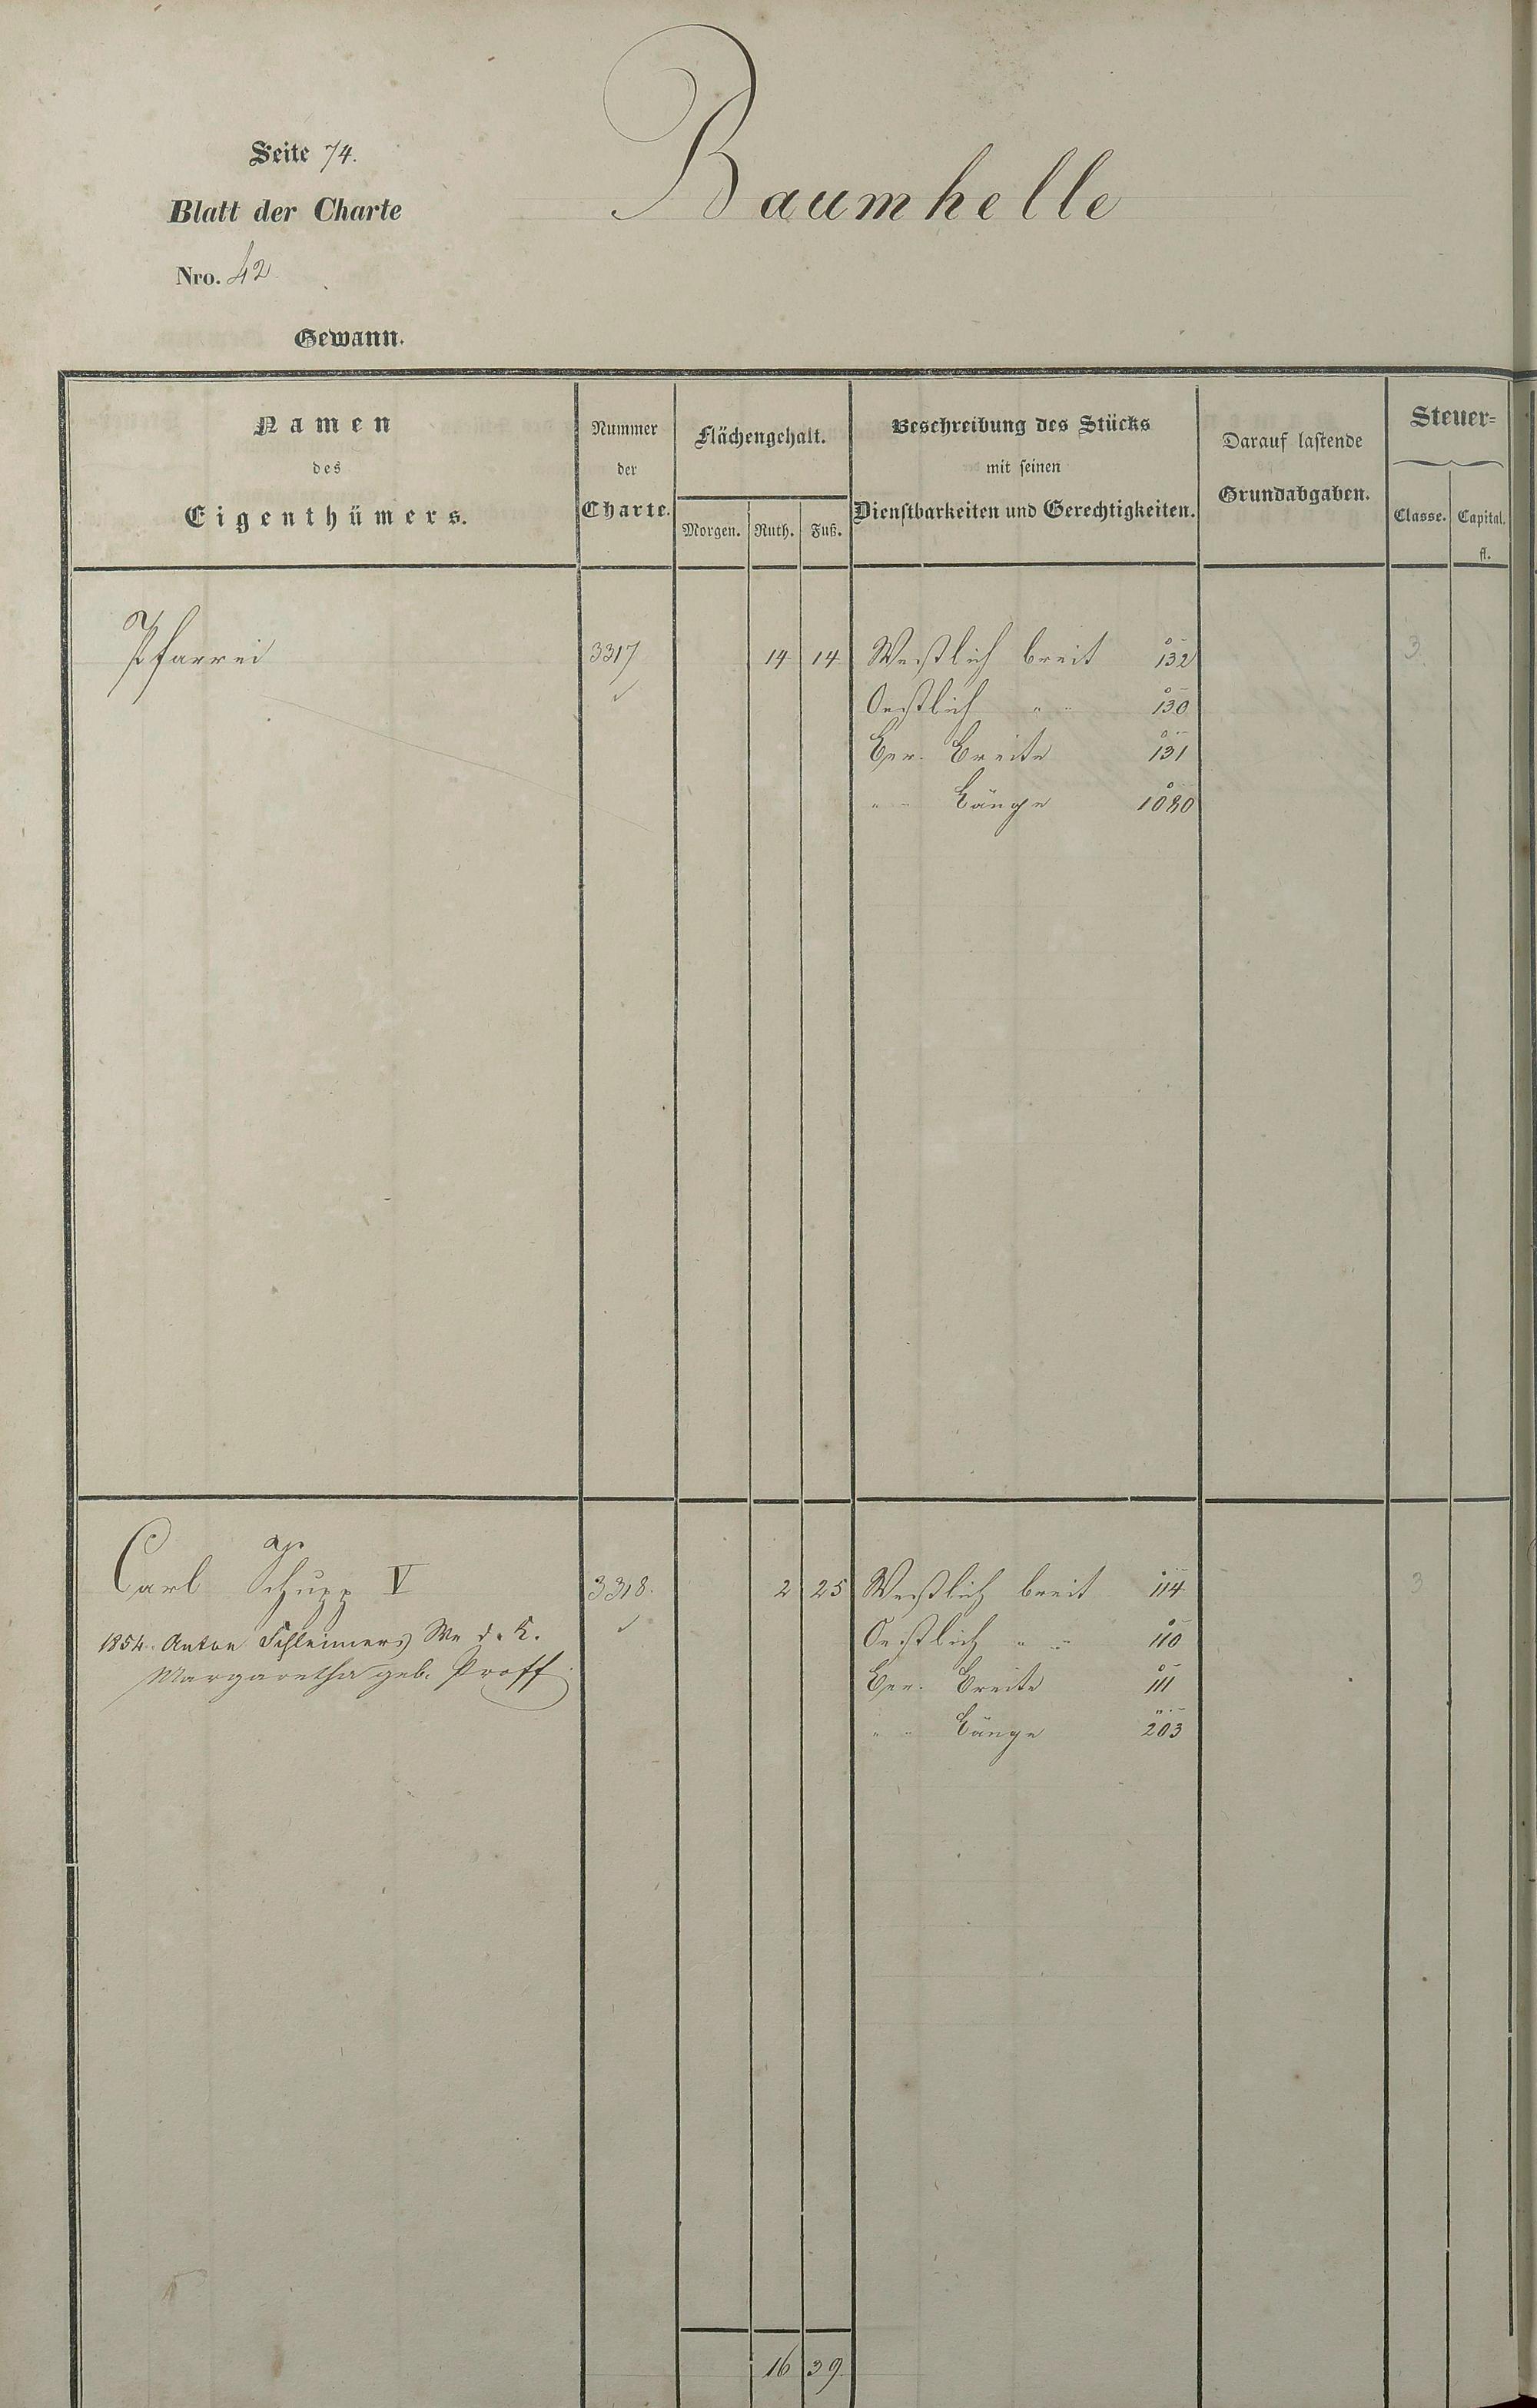 Baumhelle
Seite 74.
Blatt der Charte
Nro. 42.
Gewann.
Namen des Eigenthümers.
Nummer der Charte.
Flächengehalt.
Morgen. Ruth. Fuß.
Beschreibung des Stücks mit seinen Dienstbarkeiten und Gerechtigkeiten.
Darauf lastende Grundabgaben.
Steuer=
Classe. Capital. fl.
Pfarrei 3317 14 14 Westlich breit 132 3.
Oestlich " " 130
Ger. Breite 131
" " Länge 1080
Carl Schupp V 3318. 2 25 Westlich breit 114 3
1854. Anton Schleimers We d. K. Oestlich " " 110
Margaretha geb. Proff Ger. Breite 111
" " Länge 203
16 39.